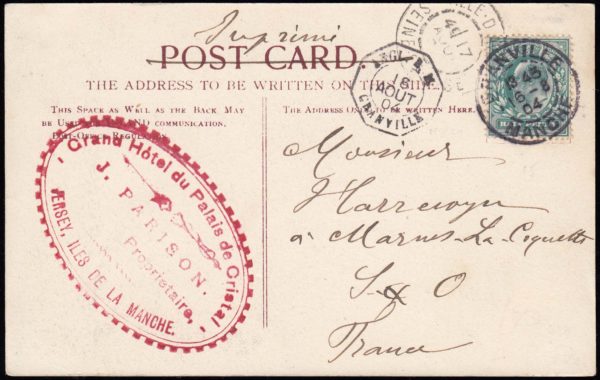 Imprimé
POST CARD.
THE ADDRESS TO BE WRITTEN ON THIS SIDE.
This Space as Well as the Back May
be Used for Inland communication.
Post-Office Regulation.
The Address Only to be Written Here.
GRANVILLE
8 45
04
MANCHE
18
AOUT
04
GRANVILLE
Grand Hôtel du Palais de Cristal
J. PARISON.
Propriétaire,
JERSEY, ILES DE LA MANCHE.
Monsieur
Harrewyn
à Marnes-La-Coquette
S & O
France